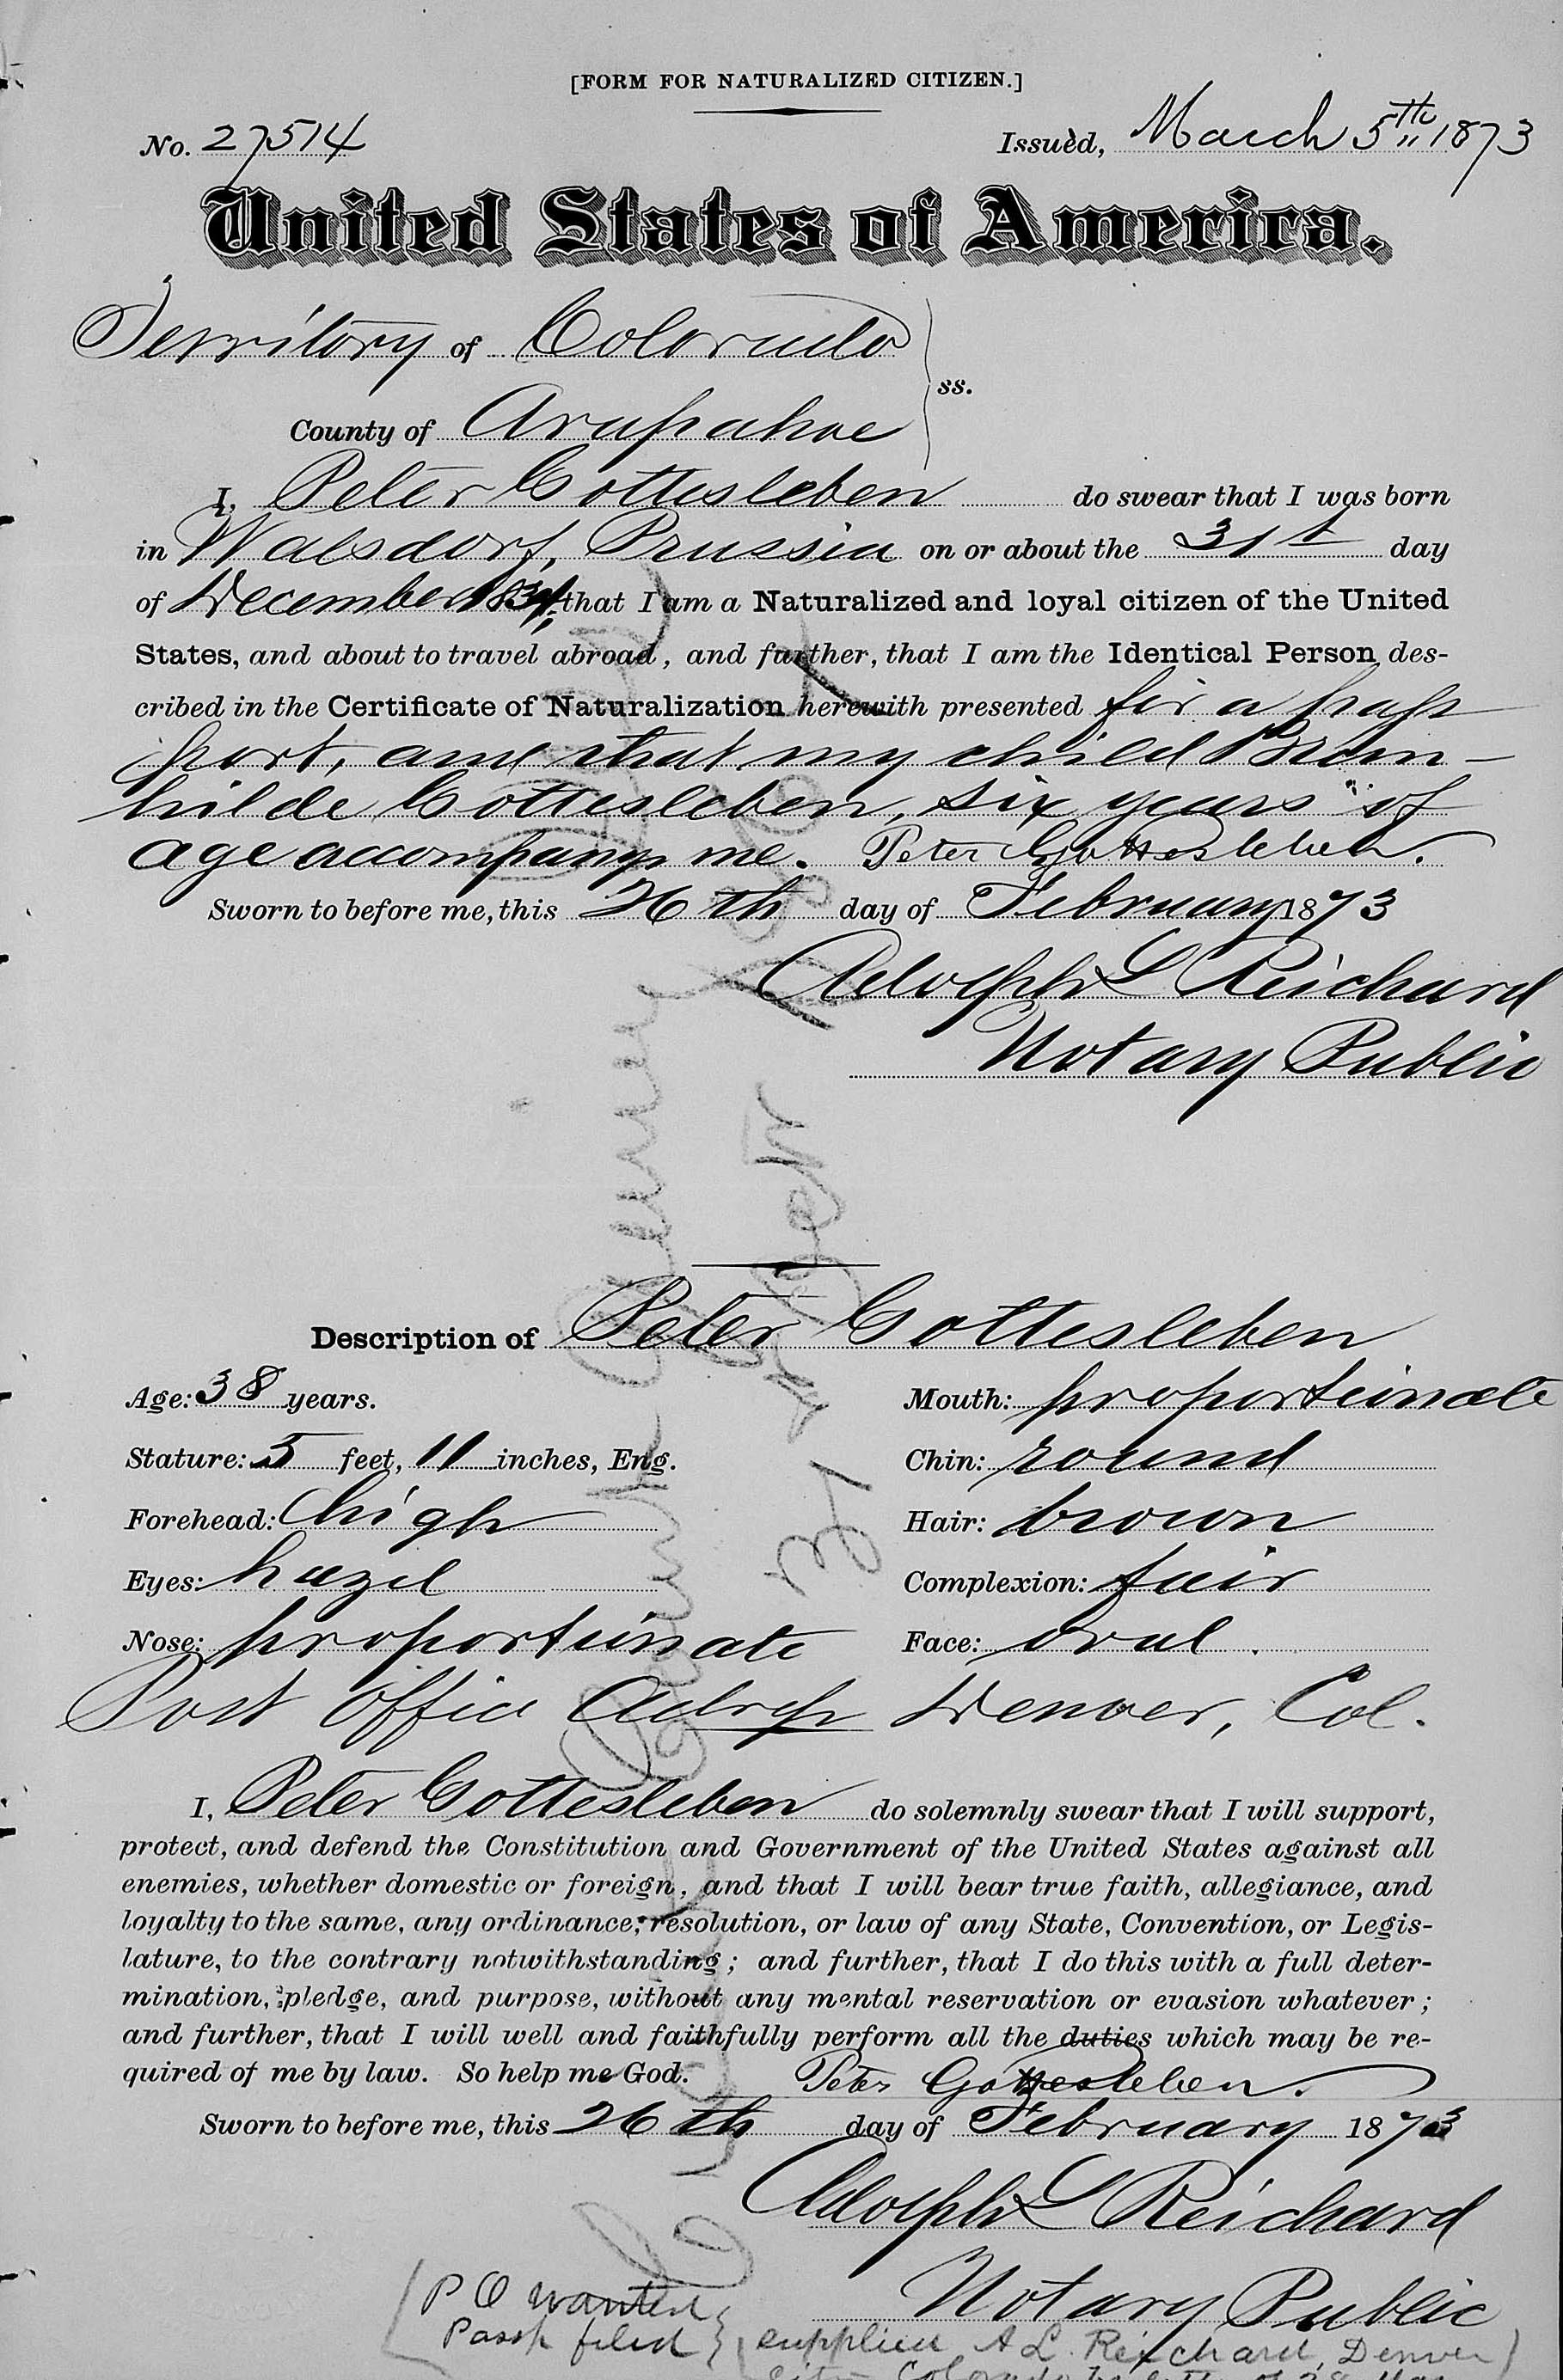 [FORM FOR NATURALIZED CITIZEN.]
No. 27514 Issued, March 5th 1873
United States of America.
Territory of Colorado
ss.
County of Arapahoe
I, Peter Gottesleben do swear that I was born
in Walsdorf, Prussia on or about the 31st day
of December 1834, that I am a Naturalized and loyal citizen of the United
States, and about to travel abroad, and further, that I am the Identical Person des-
cribed in the Certificate of Naturalization herewith presented for a pass
port, and that my child Brun-
hilde Gottesleben, six years of
age accompanys me. Peter Gottesleben.
Sworn to before me, this 26th day of February 1873
Adolph L Reichard
Notary Public
Description of Peter Gottesleben
Age: 38 years. Mouth: proportionate
Stature: 5 feet, 11 inches, Eng. Chin: round
Forehead: high Hair: brown
Eyes: hazel Complexion: fair
Nose: proportionate Face: oval.
Post Office Adress Denver, Col.
I, Peter Gottesleben do solemnly swear that I will support,
protect, and defend the Constitution and Government of the United States against all
enemies, whether domestic or foreign, and that I will bear true faith, allegiance, and
loyalty to the same, any ordinance, resolution, or law of any State, Convention, or Legis-
lature, to the contrary notwithstanding; and further, that I do this with a full deter-
mination, pledge, and purpose, without any mental reservation or evasion whatever;
and further, that I will well and faithfully perform all the duties which may be re-
quired of me by law. So help me God. Peter Gottesleben.
Sworn to before me, this 26th day of February 1873
Adolph L Reichard
Notary Public
P O wanted
Passp filed
supplied A L. Reichard, Denver
City Colorado by letter of 28